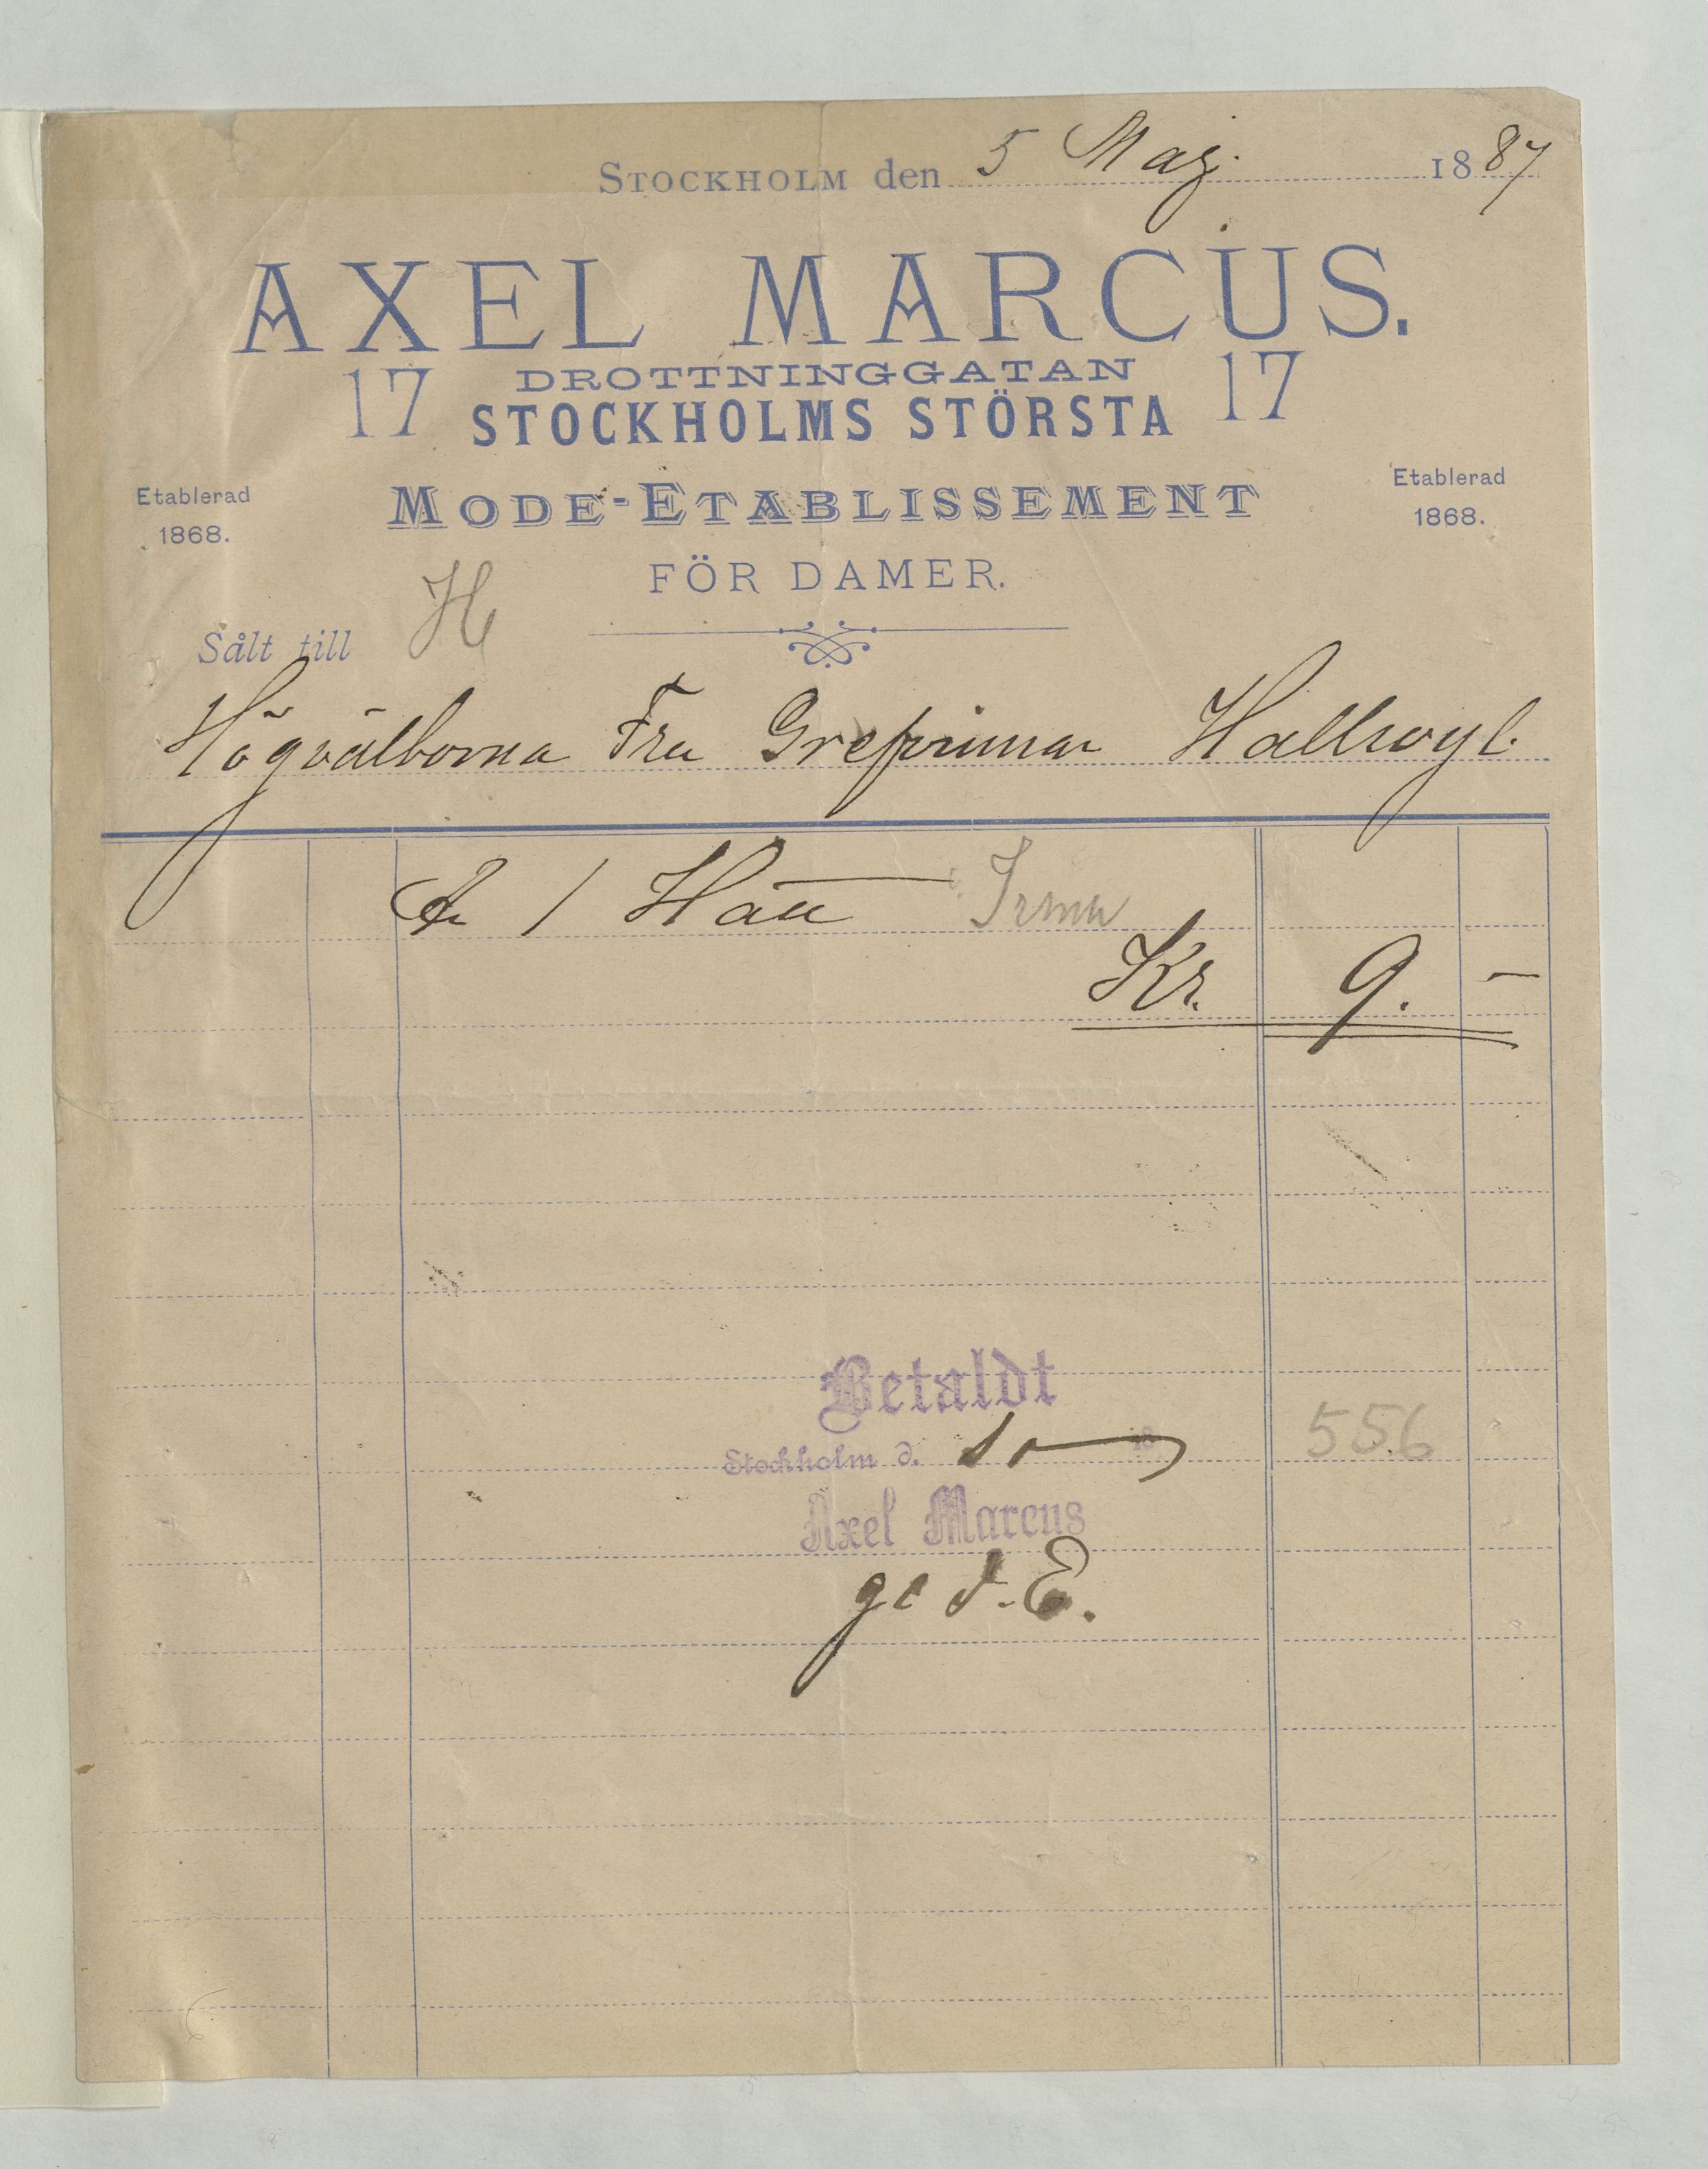 STOCKHOLM den 5 Maj. 1887
AXEL MARCUS.
17 DROTTNINGGATAN 17
STOCKHOLMS STÖRSTA
Etablerad 1868.
MODE-ETABLISSEMENT
Etablerad 1868.
FÖR DAMER.
Sålt till H
Högvälborna Fru Grefvinnan Hallwyl.
1 Hatt Irma
Kr. 9. —
Betaldt
Stockholm d. 18
556
Axel Marcus